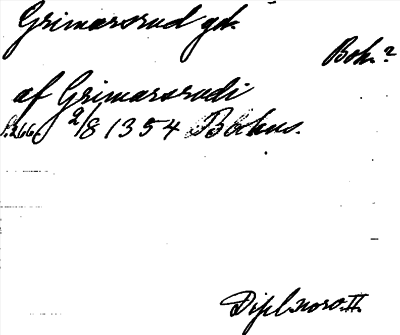 Grimarsrud gd.
Boh.?
af Grimarsrudi
s. 266. 2/8 1354 Bohus.
Dipl. norv. II.